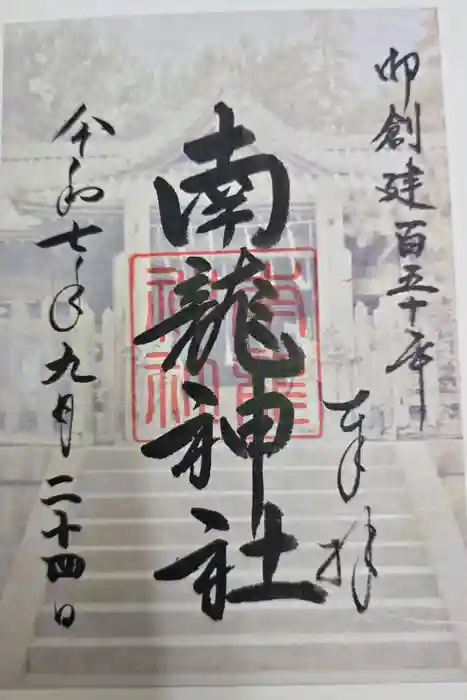 御創建百五十年
奉拝
南龍神社
令和七年九月二十四日
南龍神社